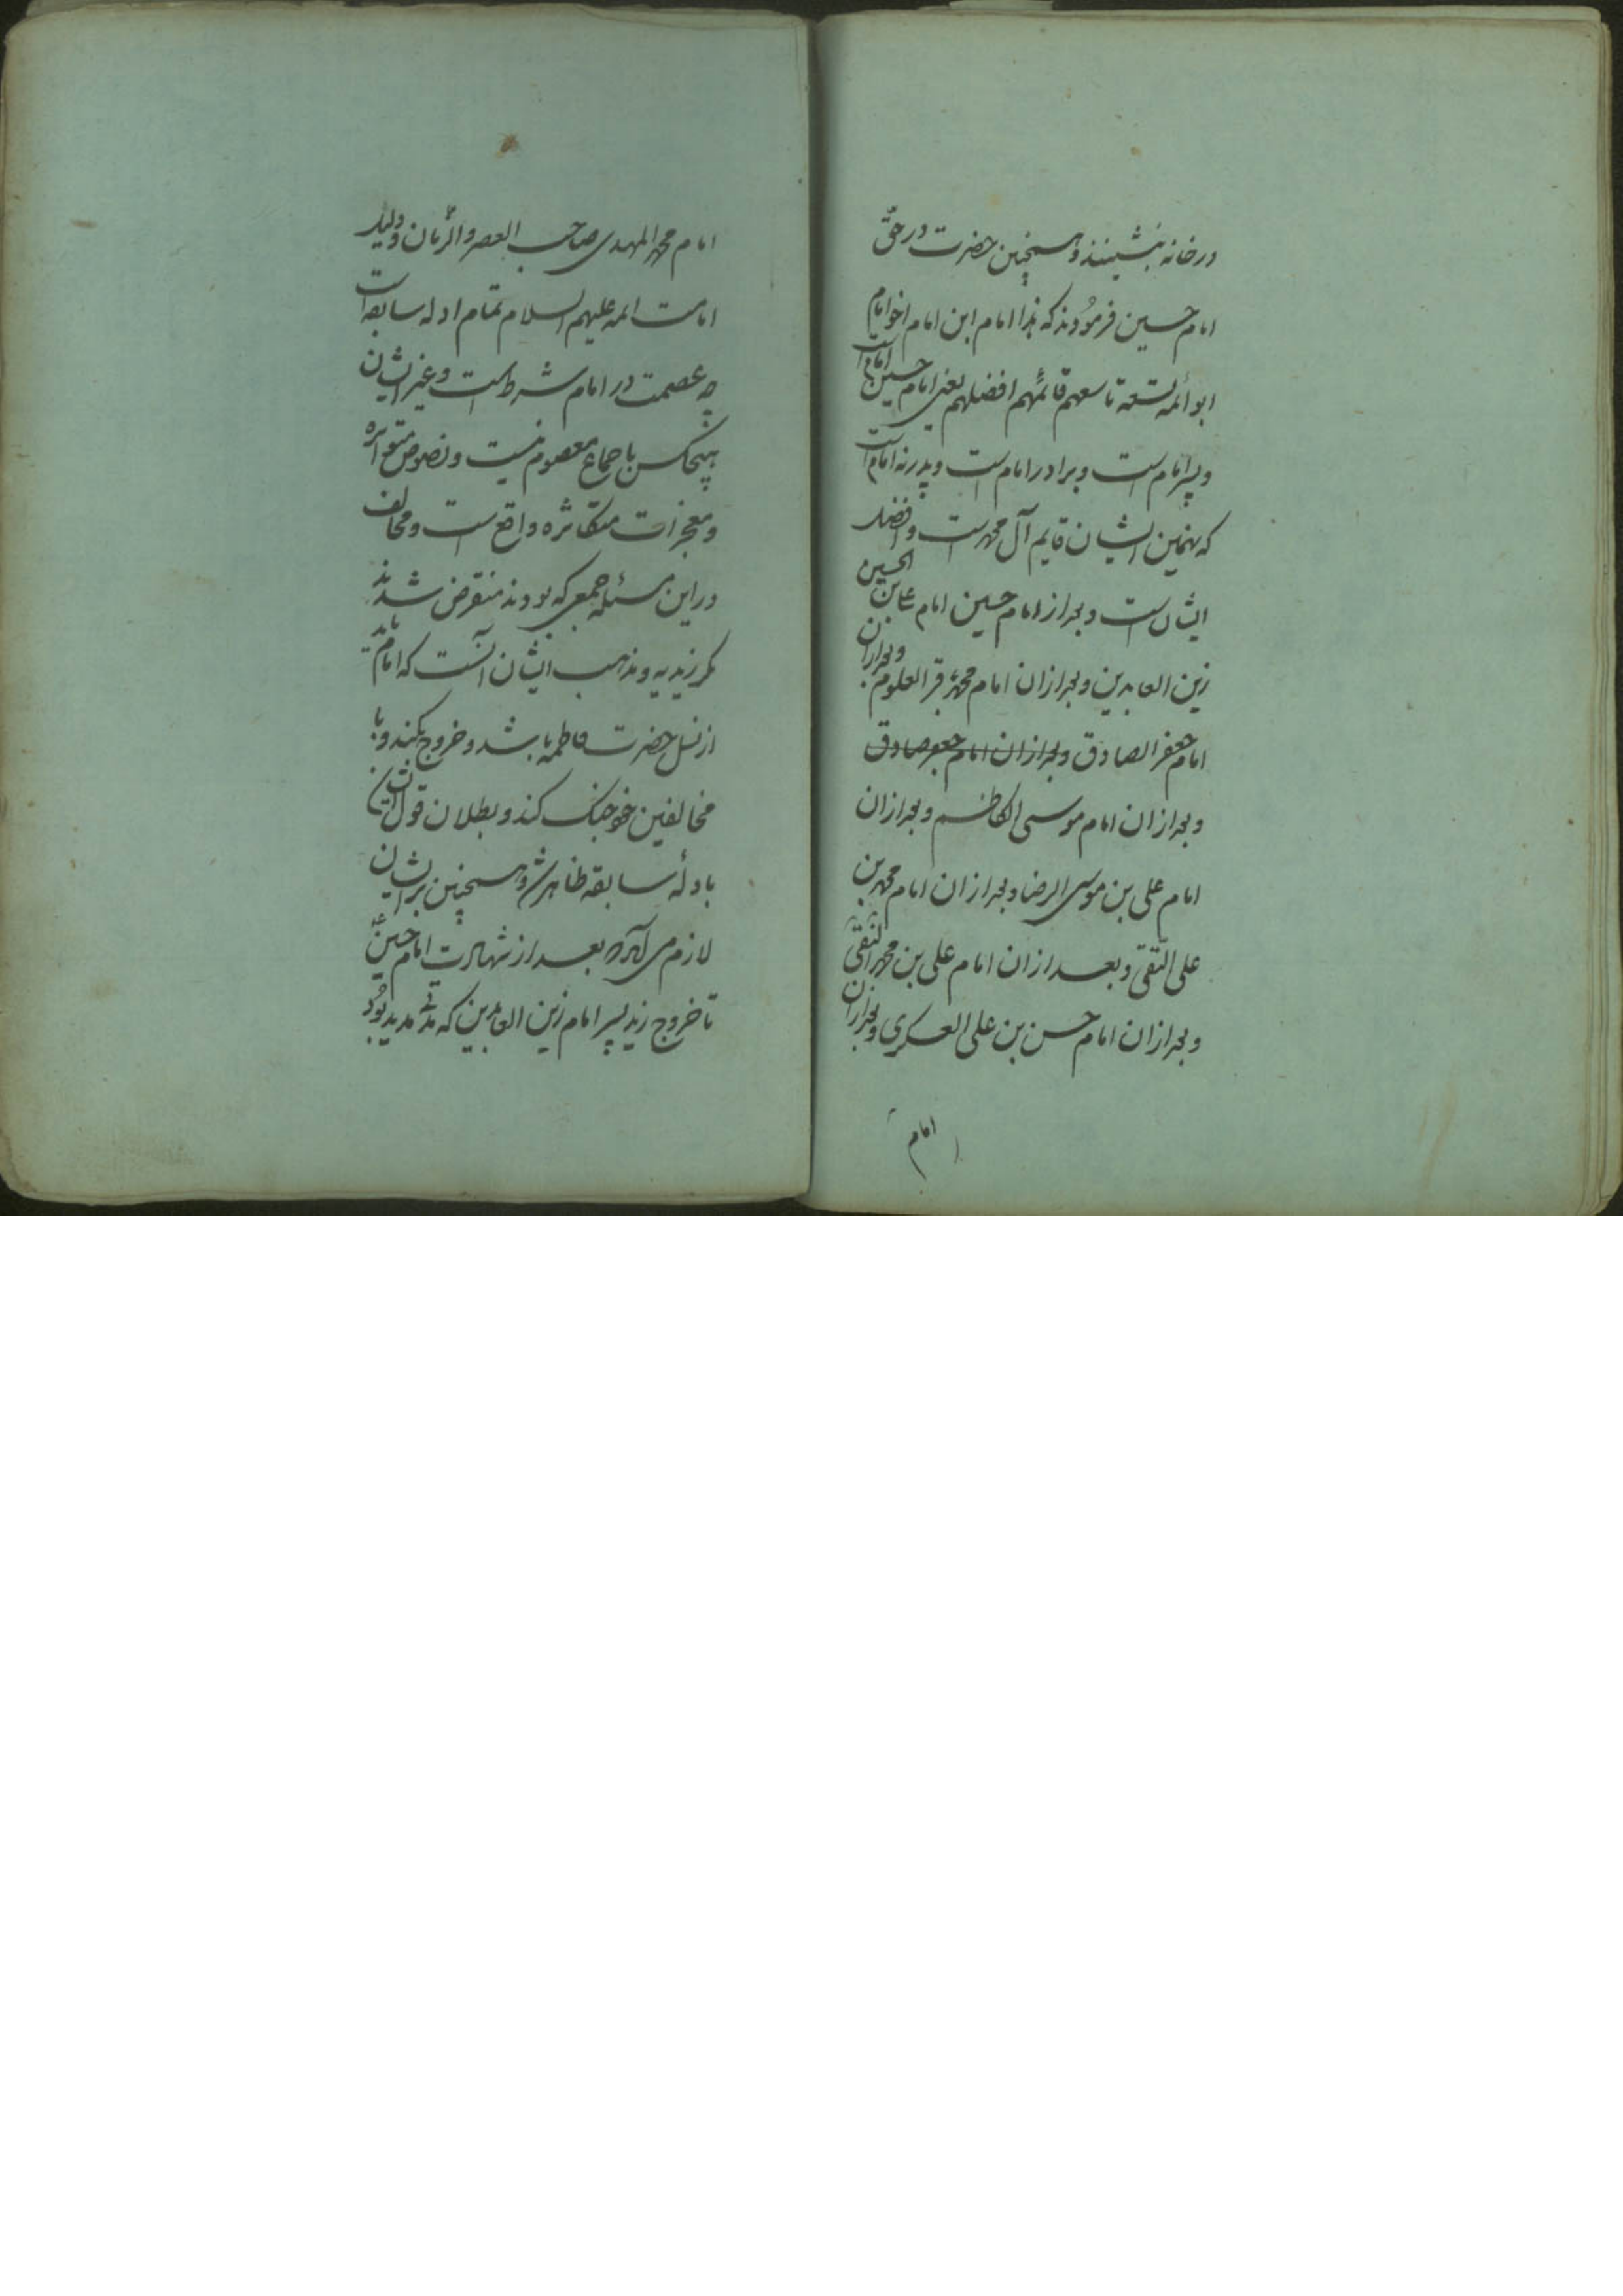 در خانه بنشینند و همچنین حضرت در حق
امام حسین فرمودند که هذا امام ابن امام اخو امام
ابو ائمه تسعه تاسعهم قائمهم افضلهم یعنی امام حسین امام است
و پسر امام است و برادر امام است و پدر نه امام است
که نهمین ایشان قایم آل محمد است و افضل
ایشان است و بعد از امام حسین امام علی بن الحسین
زین العابدین و بعد از ان امام محمد باقر العلوم و بعد از ان
امام جعفر الصادق و بعد از ان امام جعفر صادق
و بعد از ان امام موسی الکاظم و بعد از ان
امام علی بن موسی الرضا و بعد از ان امام محمد بن
علی التقی و بعد از ان امام علی بن محمد النقی
و بعد از ان امام حسن بن علی العسکری و بعد از ان
امام
امام محمد المهدی صاحب العصر و الزمان و دلیل
امامت ائمه علیهم السلام تمام ادله سابقه است
چه عصمت در امام شرط است و غیر ایشان
هیچکس باجماع معصوم نیست و نصوص متواتره
و معجزات متکاثره واقع است و مخالف
در این مسئله جمعی که بودند منقرض شدند
مگر زیدیه و مذهب ایشان آنست که امام باید
از نسل حضرت فاطمه باشد و خروج بکند و با
مخالفین خود جنگ کند و بطلان قول ایشان
بادلّه سابقه ظاهر شد و همچنین بر ایشان
لازم می آید که بعد از شهادت امام حسین ع
تا خروج زید پسر امام زین العابدین که مدتی مدید بود